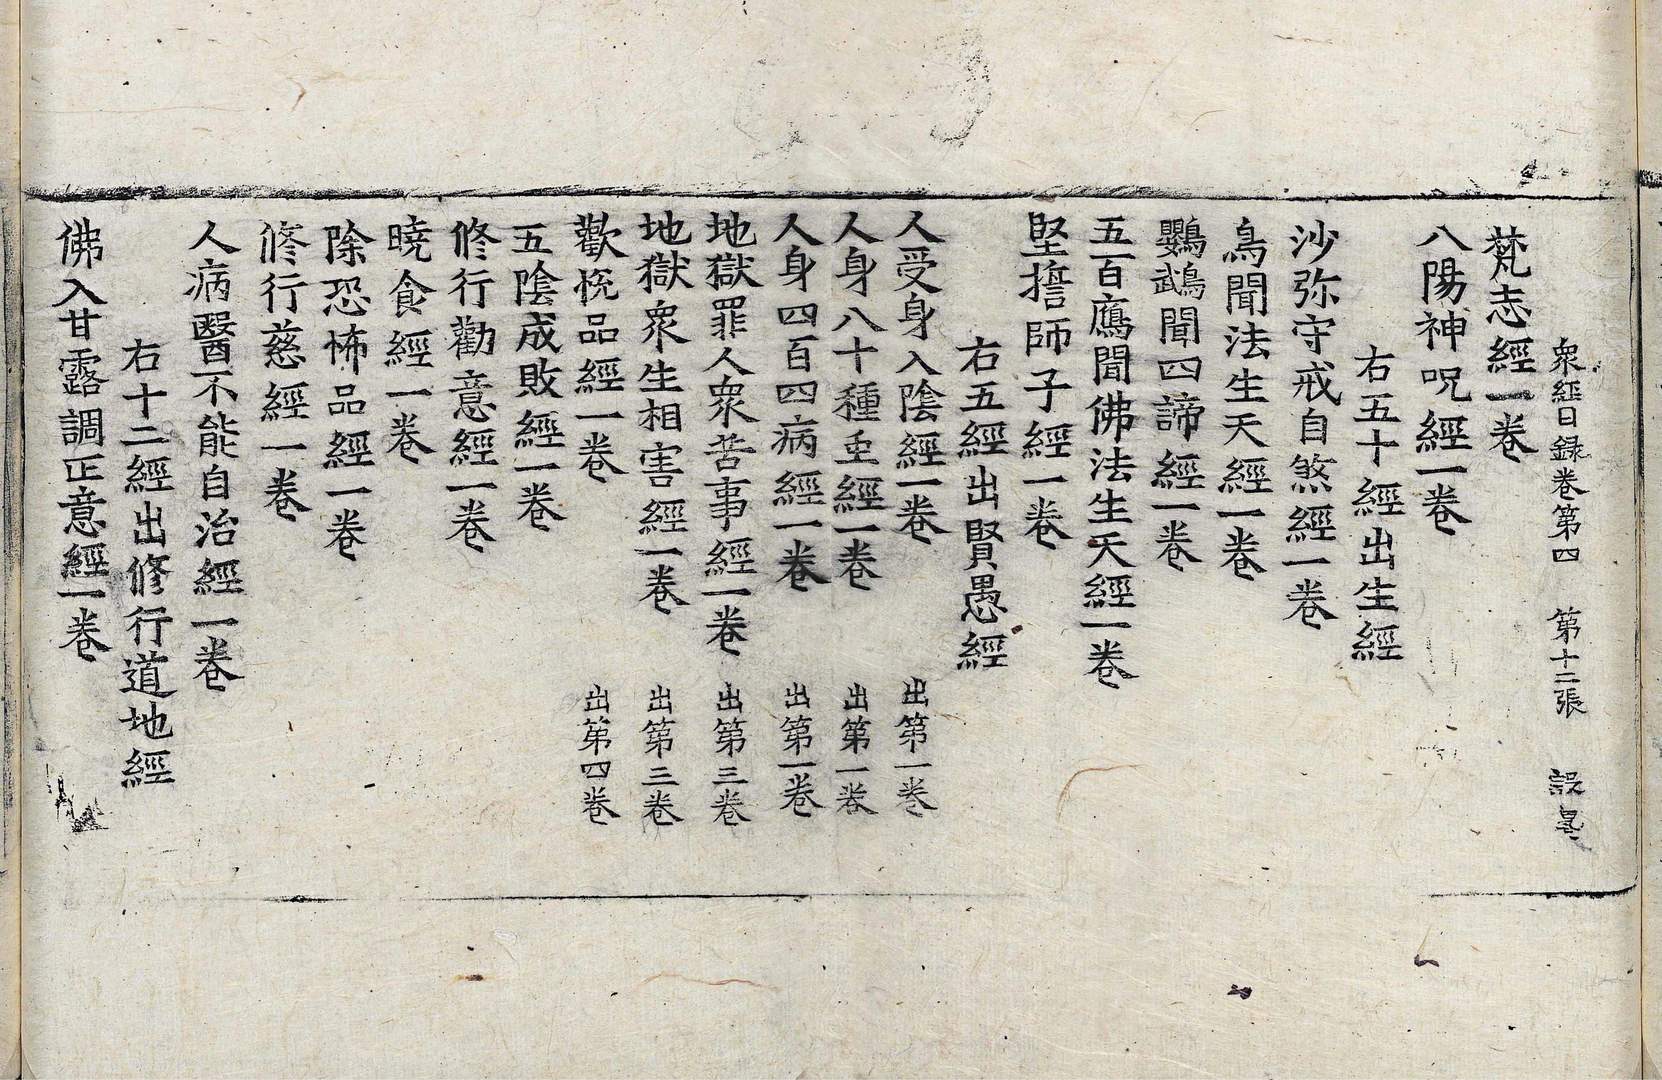 衆經目録卷第四　第十二張
梵志經一卷
八陽神呪經一卷
右五十經出生經
沙弥守戒自煞經一卷
鳥聞法生天經一卷
鸚鵡聞四諦經一卷
五百鴈聞佛法生天經一卷
堅誓師子經一卷
右五經出賢愚經
人受身入陰經一卷　出第一卷
人身八十種虫經一卷　出第一卷
人身四百四病經一卷　出第一卷
地獄罪人衆苦事經一卷　出第三卷
地獄衆生相害經一卷　出第三卷
歡悅品經一卷　出第四卷
五陰成敗經一卷
修行勸意經一卷
曉食經一卷
除恐怖品經一卷
修行慈經一卷
人病醫不能自治經一卷
右十二經出修行道地經
佛入甘露調正意經一卷